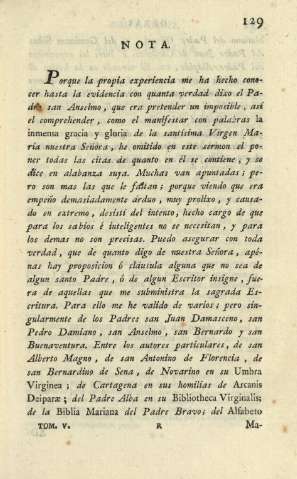 129
NOTA.
Porque la propia experiencia me ha hecho cono-
cer hasta la evidencia con quanta verdad dixo el Pa-
dre san Anselmo, que era pretender un imposible, así
el comprehender, como el manifestar con palabras la
inmensa gracia y gloria de la santísima Virgen Ma-
ría nuestra Señora, he omitido en este sermon el po-
ner todas las citas de quanto en él se contiene; y se
dice en alabanza suya. Muchas van apuntadas; pe-
ro son mas las que le faltan; porque viendo que era
empeño demasiadamente arduo, muy prolixo, y causa-
do en extremo, desistí del intento, hecho cargo de que
para los sabios é inteligentes no se necesitan, y para
los demas no son precisas. Puedo asegurar con toda
verdad, que de quanto digo de nuestra Señora, apé-
nas hay proposicion ó cláusula alguna que no sea de
algun santo Padre, ó de algun Escritor insigne, fue-
ra de aquellas que me subministra la sagrada Es-
critura. Para ello me he valido de varios; pero sin-
gularmente de los Padres san Juan Damasceno, san
Pedro Damiano, san Anselmo, san Bernardo y san
Buenaventura. Entre los autores particulares, de san
Alberto Magno, de san Antonino de Florencia, de
san Bernardino de Sena, de Novarino en su Umbra
Virginea; de Cartagena en sus homilias de Arcanis
Deiparæ; del Padre Alba en su Bibliotheca Virginalis;
de la Biblia Mariana del Padre Bravo; del Alfabeto
TOM. V. R Ma-